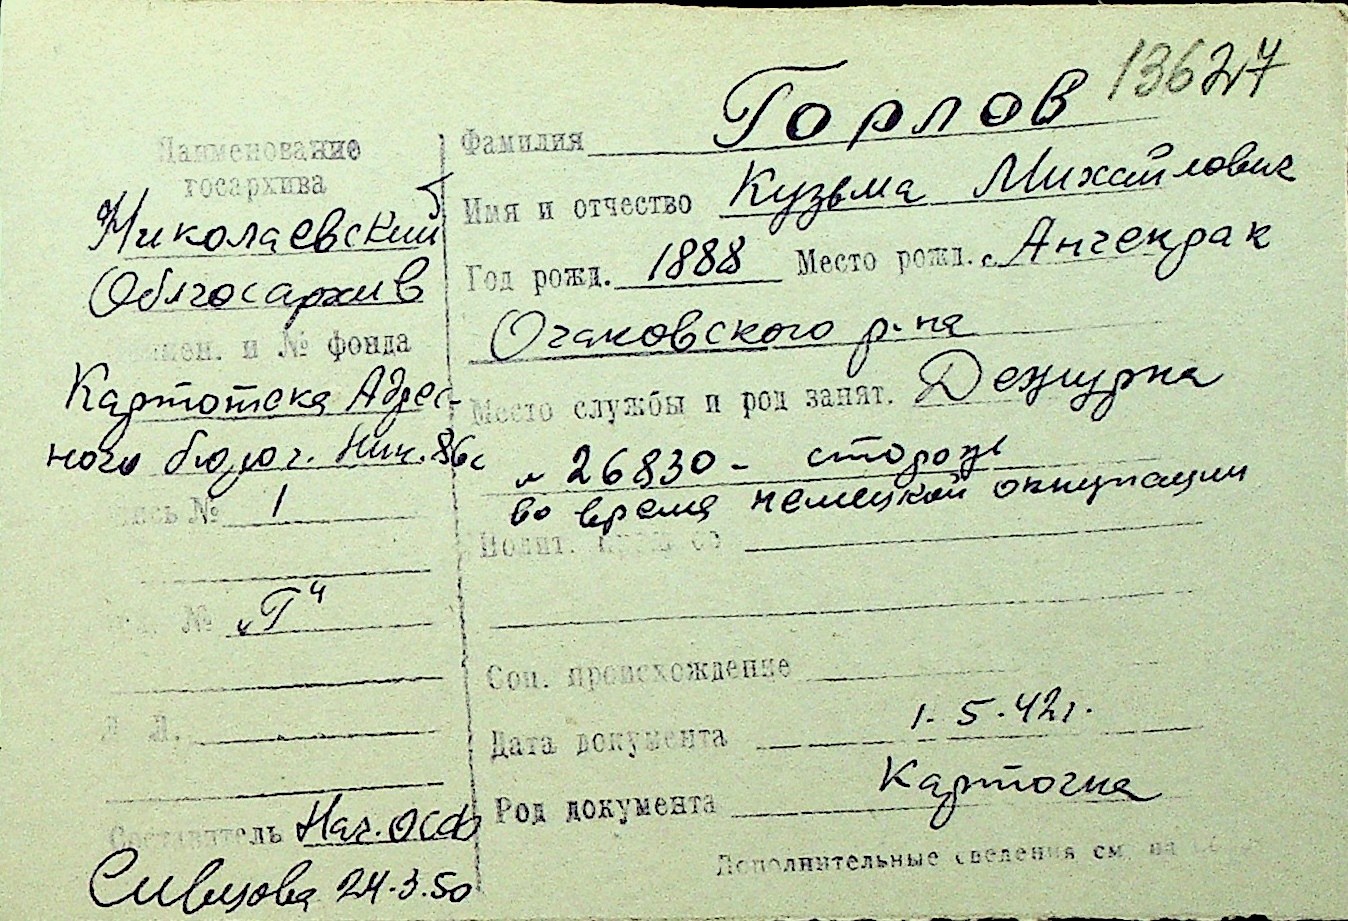 13627
Наименование
госархива
Николаевский
Облгосархив
Наимен. и № фонда
Картотека Адрес-
ного бюро г. Ник. 86с
Опись № 1
Ед. № „Г“
Л. Л.
Составитель Нач. ОСФ
Сивцова 24.3.50
Фамилия Горлов
Имя и отчество Кузьма Михайлович
Год рожд. 1888 Место рожд. с. Анчекрак
Очаковского р-на
Место службы и род занят. Дежурка
№ 26830 - сторож
во время немецкой оккупации
Полит.
Соц. происхождение
Дата документа 1.5.42г.
Род документа Карточка
Дополнительные сведения см. на